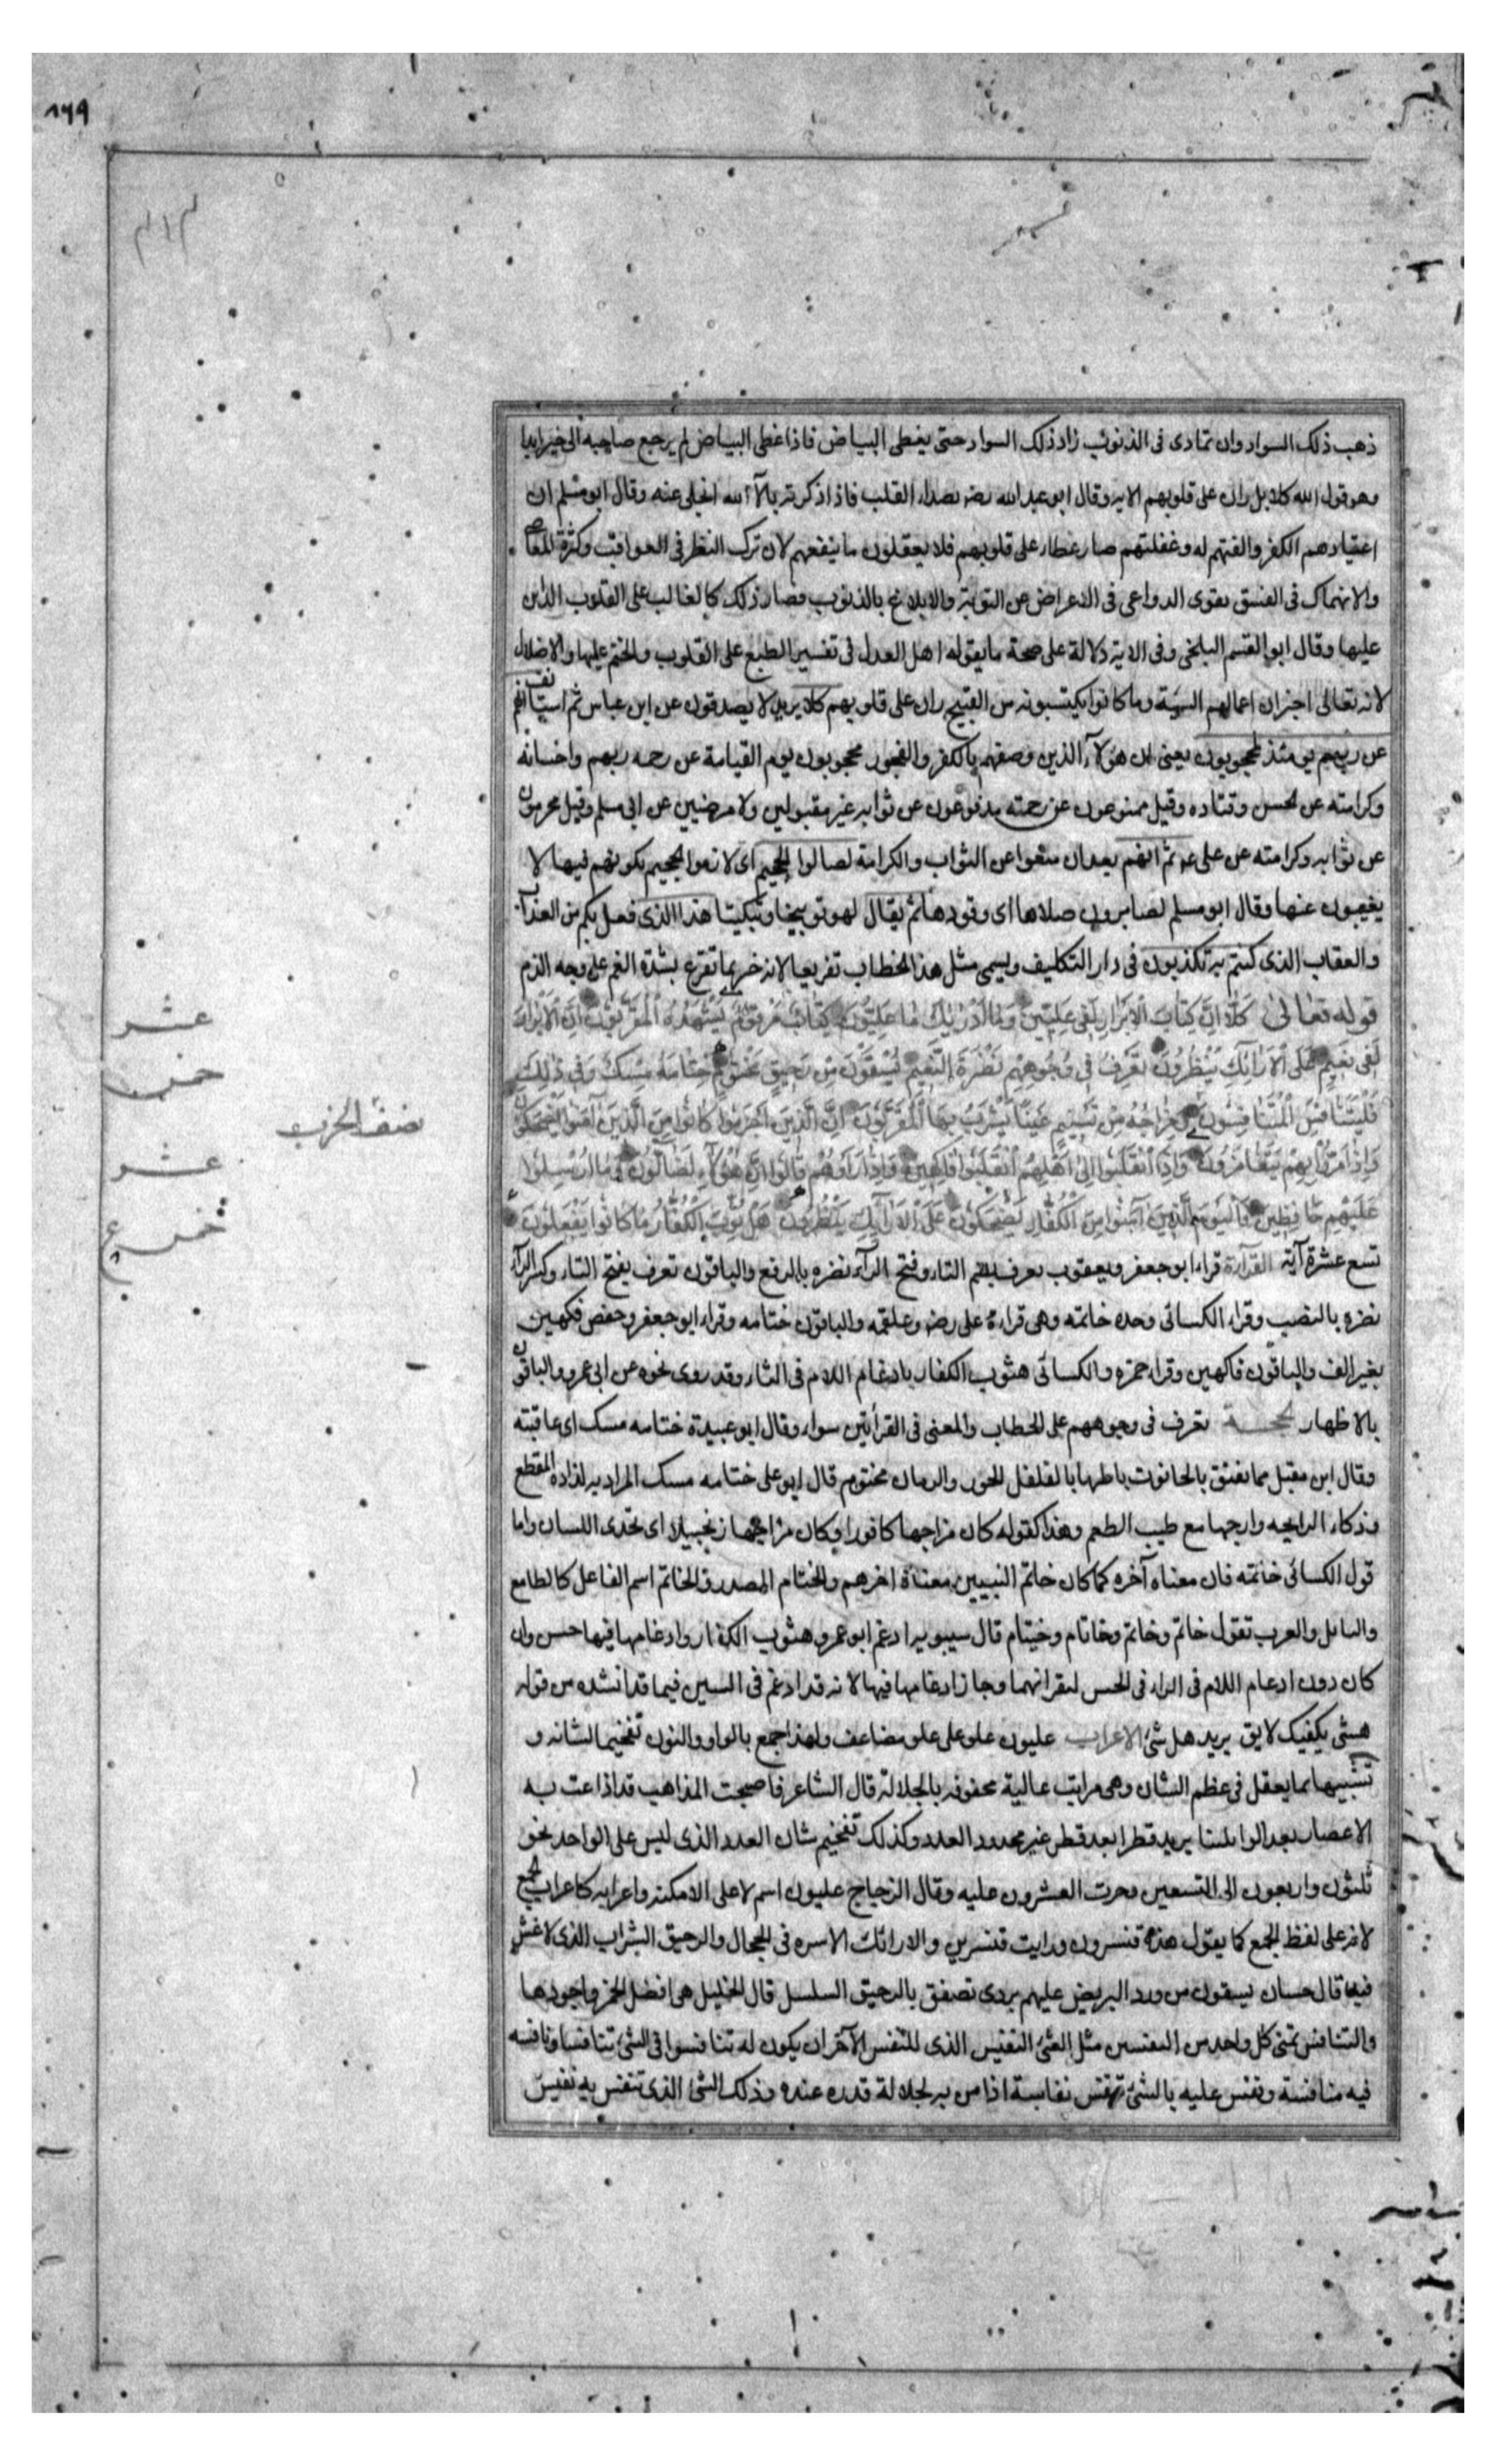 ١٦٩
ذهب ذلك السواد وان تمادى فى الذنوب زاد ذلك السواد حتى يغطى البياض فاذا غطى البياض لم يرجع صاحبه الى خير ابدا
وهو قول الله كلا بل ران على قلوبهم الايه وقال ابو عبد الله رضه يصداء القلب فاذا ذكرته بالآء الله انجلى عنه وقال ابو مسلم ان
اعتيادهم الكفر والفتهم له وغفلتهم صار غطاء على قلوبهم فلا يعقلون ما ينفعهم لان ترك النظر فى العواقب وكثرة المعاصى
والانهماك فى الفسق يقوى الدواعى فى الاعراض عن التوبة والاقلاع بالذنوب فصار ذلك كالغالب على القلوب الذين
عليها وقال ابو القسم البلخى وفى الاية دلالة على صحة ما يقوله اهل العدل فى تفسير الطبع على القلوب والختم عليها والاضلال
لانه تعالى اخبر ان اعمالهم السيئة وما كانوا يكتسبونه من القبيح ران على قلوبهم كلا يريد لا يصدقون عن ابن عباس ثم استانف انهم
عن ربهم يومئذ لمحجوبون يعنى ان هؤلآء الذين وصفهم بالكفر والفجور محجوبون يوم القيامة عن رحمه ربهم واحسانه
وكرامته عن الحسن وقتاده وقيل ممنوعون عن رحمته مدفوعون عن ثوابه غير مقبولين ولا مرضيين عن ابى مسلم وقيل محرمون
عن ثوابه وكرامته عن على عم ثم انهم بعد ان منعوا عن الثواب والكرامة لصالوا الجحيم اى لازموا الجحيم بكونهم فيها لا
يغيبون عنها وقال ابو مسلم لصايرون صلاها اى وقودها ثم يقال لهو توبيخا وتبكيتا هذا الذى فعل بكم من العذاب
والعقاب الذى كنتم به تكذبون فى دار التكليف ويسمى مثل هذا الخطاب تقريعا لانه خبر بما تقرع بشدة الغم على وجه الذم
قوله تعالى كَلَّا اِنَّ كِتَابَ الْاَبْرَارِ لَفِى عِلِيّينَ وَمَا اَدْرٰيكَ مَا عِلِيُّونَ كِتَابٌ مَرْقُومٌ يَشْهَدُهُ الْمُقَرَّبُونَ اِنَّ الْاَبْرَارَ
لَفِى نَعِيمٍ عَلَى الْاَرَائِكِ يَنْظُرُونَ تَعْرِفُ فِى وُجُوهِهِمْ نَضْرَةَ النَّعِيمِ يُسْقَوْنَ مِنْ رَحِيقٍ مَخْتُومٍ خِتَامُهُ مِسْكٌ وَفِى ذٰلِكَ
فَلْيَتَنَافَسِ الْمُتَنَافِسُونَ وَمِزَاجُهُ مِنْ تَسْنِيمٍ عَيْنًا يَشْرَبُ بِهَا الْمُقَرَّبُونَ اِنَّ الَّذِينَ اَجْرَمُوا كَانُوا مِنَ الَّذِينَ آمَنُوا يَضْحَكُونَ
وَاِذَا مَرُّوا بِهِمْ يَتَغَامَزُونَ وَاِذَا انْقَلَبُوا اِلٰى اَهْلِهِمُ انْقَلَبُوا فَاكِهِينَ وَاِذَا رَاَوْهُمْ قَالُوا اِنَّ هٰؤُلَاءِ لَضَالُّونَ وَمَا اُرْسِلُوا
عَلَيْهِمْ حَافِظِينَ فَالْيَوْمَ الَّذِينَ آمَنُوا مِنَ الْكُفَّارِ يَضْحَكُونَ عَلَى الْاَرَائِكِ يَنْظُرُونَ هَلْ ثُوِّبَ الْكُفَّارُ مَا كَانُوا يَفْعَلُونَ
تسع عشرة آية القراءة قراء ابو جعفر ويعقوب تعرف بضم التاء وفتح الرآء نضره بالرفع والباقون تعرف بفتح التاء وكسر الرآء
نضره بالنصب وقراء الكسائى وحده خاتمه وهى قراءة على رضه وعلقمه والباقون ختامه وقراء ابو جعفر وحفص فكهين
بغير الف والباقون فاكهين وقراء حمزه والكسائى هثوب الكفار بادغام اللام فى الثاء وقد روى نحوه عن ابى عمرو والباقون
بالاظهار الحجة تعرف فى وجوههم على الخطاب والمعنى فى القرأتين سواء وقال ابو عبيدة ختامه مسك اى عاقبته
وقال ابن مقبل مما يفتق بالحانوت باطنها بالفلفل الجون والرمان مختوم قال ابو على ختامه مسك المراد به لذاذه المقطع
وذكاء الرايحه وارجها مع طيب الطعم وهذا كقوله كان مزاجها كافورا وكان مزاجها زنجبيلا اى تحذى اللسان واما
قول الكسائى خاتمه فان معناه آخره كما كان خاتم النبيين معناه اخرهم والختام المصدر والخاتم اسم الفاعل كالطابع
والتابل والعرب تقول خاتم وخاتم وخاتام وخيتام قال سيبويه ادغم ابو عمرو هثوب الكفار وادغامها فيها حسن وان
كان دون ادغام اللام فى الراء فى الحسن لتقرانهما وجاز ادغامها فيها لانه قد ادغم فى الشين فيما قد انشده من قوله
هشئ بكفيك لايق يريد هل شئ الاعراب عليون علو على علو مضاعف ولهذا جمع بالواو والنون تفخيما لشانه و
تشبيها بما يعقل فى عظم الشان وهى مراتب عالية محفوفه بالجلالة قال الشاعر فاصبحت المذاهب قد اذاعت به
الاعصار بعد الوابلينا يريد قطرا بعد قطر غير محدود العدد وكذلك تفخيم شان العدد الذى ليس على الواحد نحو
ثلثون واربعون الى التسعين وجرت العشرون عليه وقال الزجاج عليون اسم لاعلى الامكنه واعرابه كاعراب الجمع
لانه على لفظ الجمع كما يقول هذه قنسرون ورايت قنسرين والارائك الاسره فى الحجال والرحيق الشراب الذى لا غش
فيه قال حسان يسقون من ورد البريص عليهم بردى تصفق بالرحيق السلسل قال الخليل هى افضل الخمر واجودها
والتنافس تمنى كل واحد من النفسين مثل الشئ النفيس الذى للنفس الآخر ان يكون له تنافسوا فى الشئ تنافسا ونافسه
فيه منافسة ونفس عليه بالشئ تنفس نفاسة اذا من به لجلالة قدره عنده وذلك الشئ الذى تنفس به نفيس
عشر
خمس
نصف الحزب
عشر
خمس ع